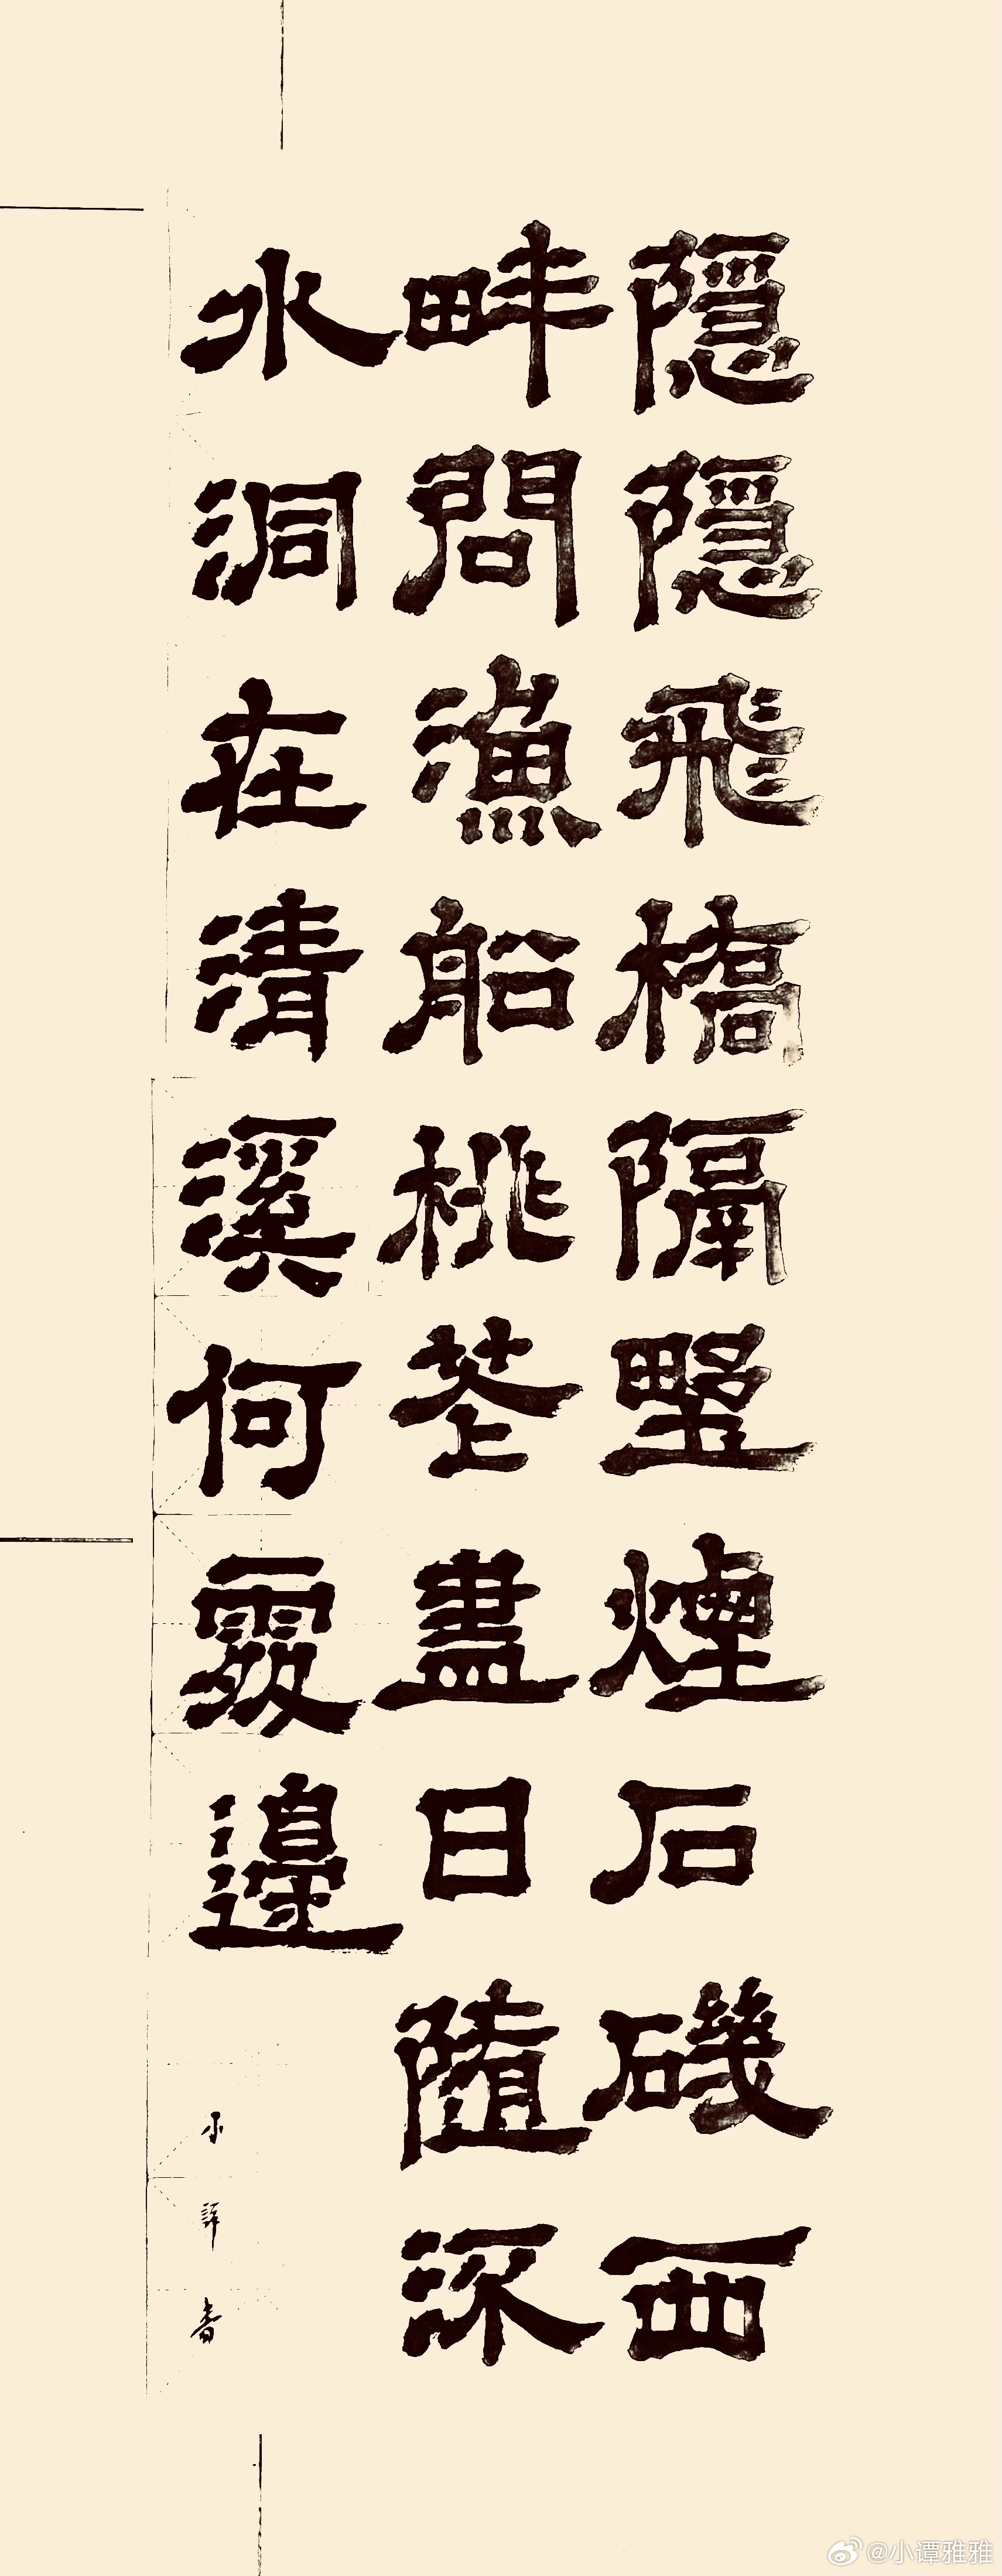 隱隱飛橋隔野煙石磯西
畔問漁船桃花盡日隨流
水洞在清溪何處邊
小譚書
@小谭雅雅